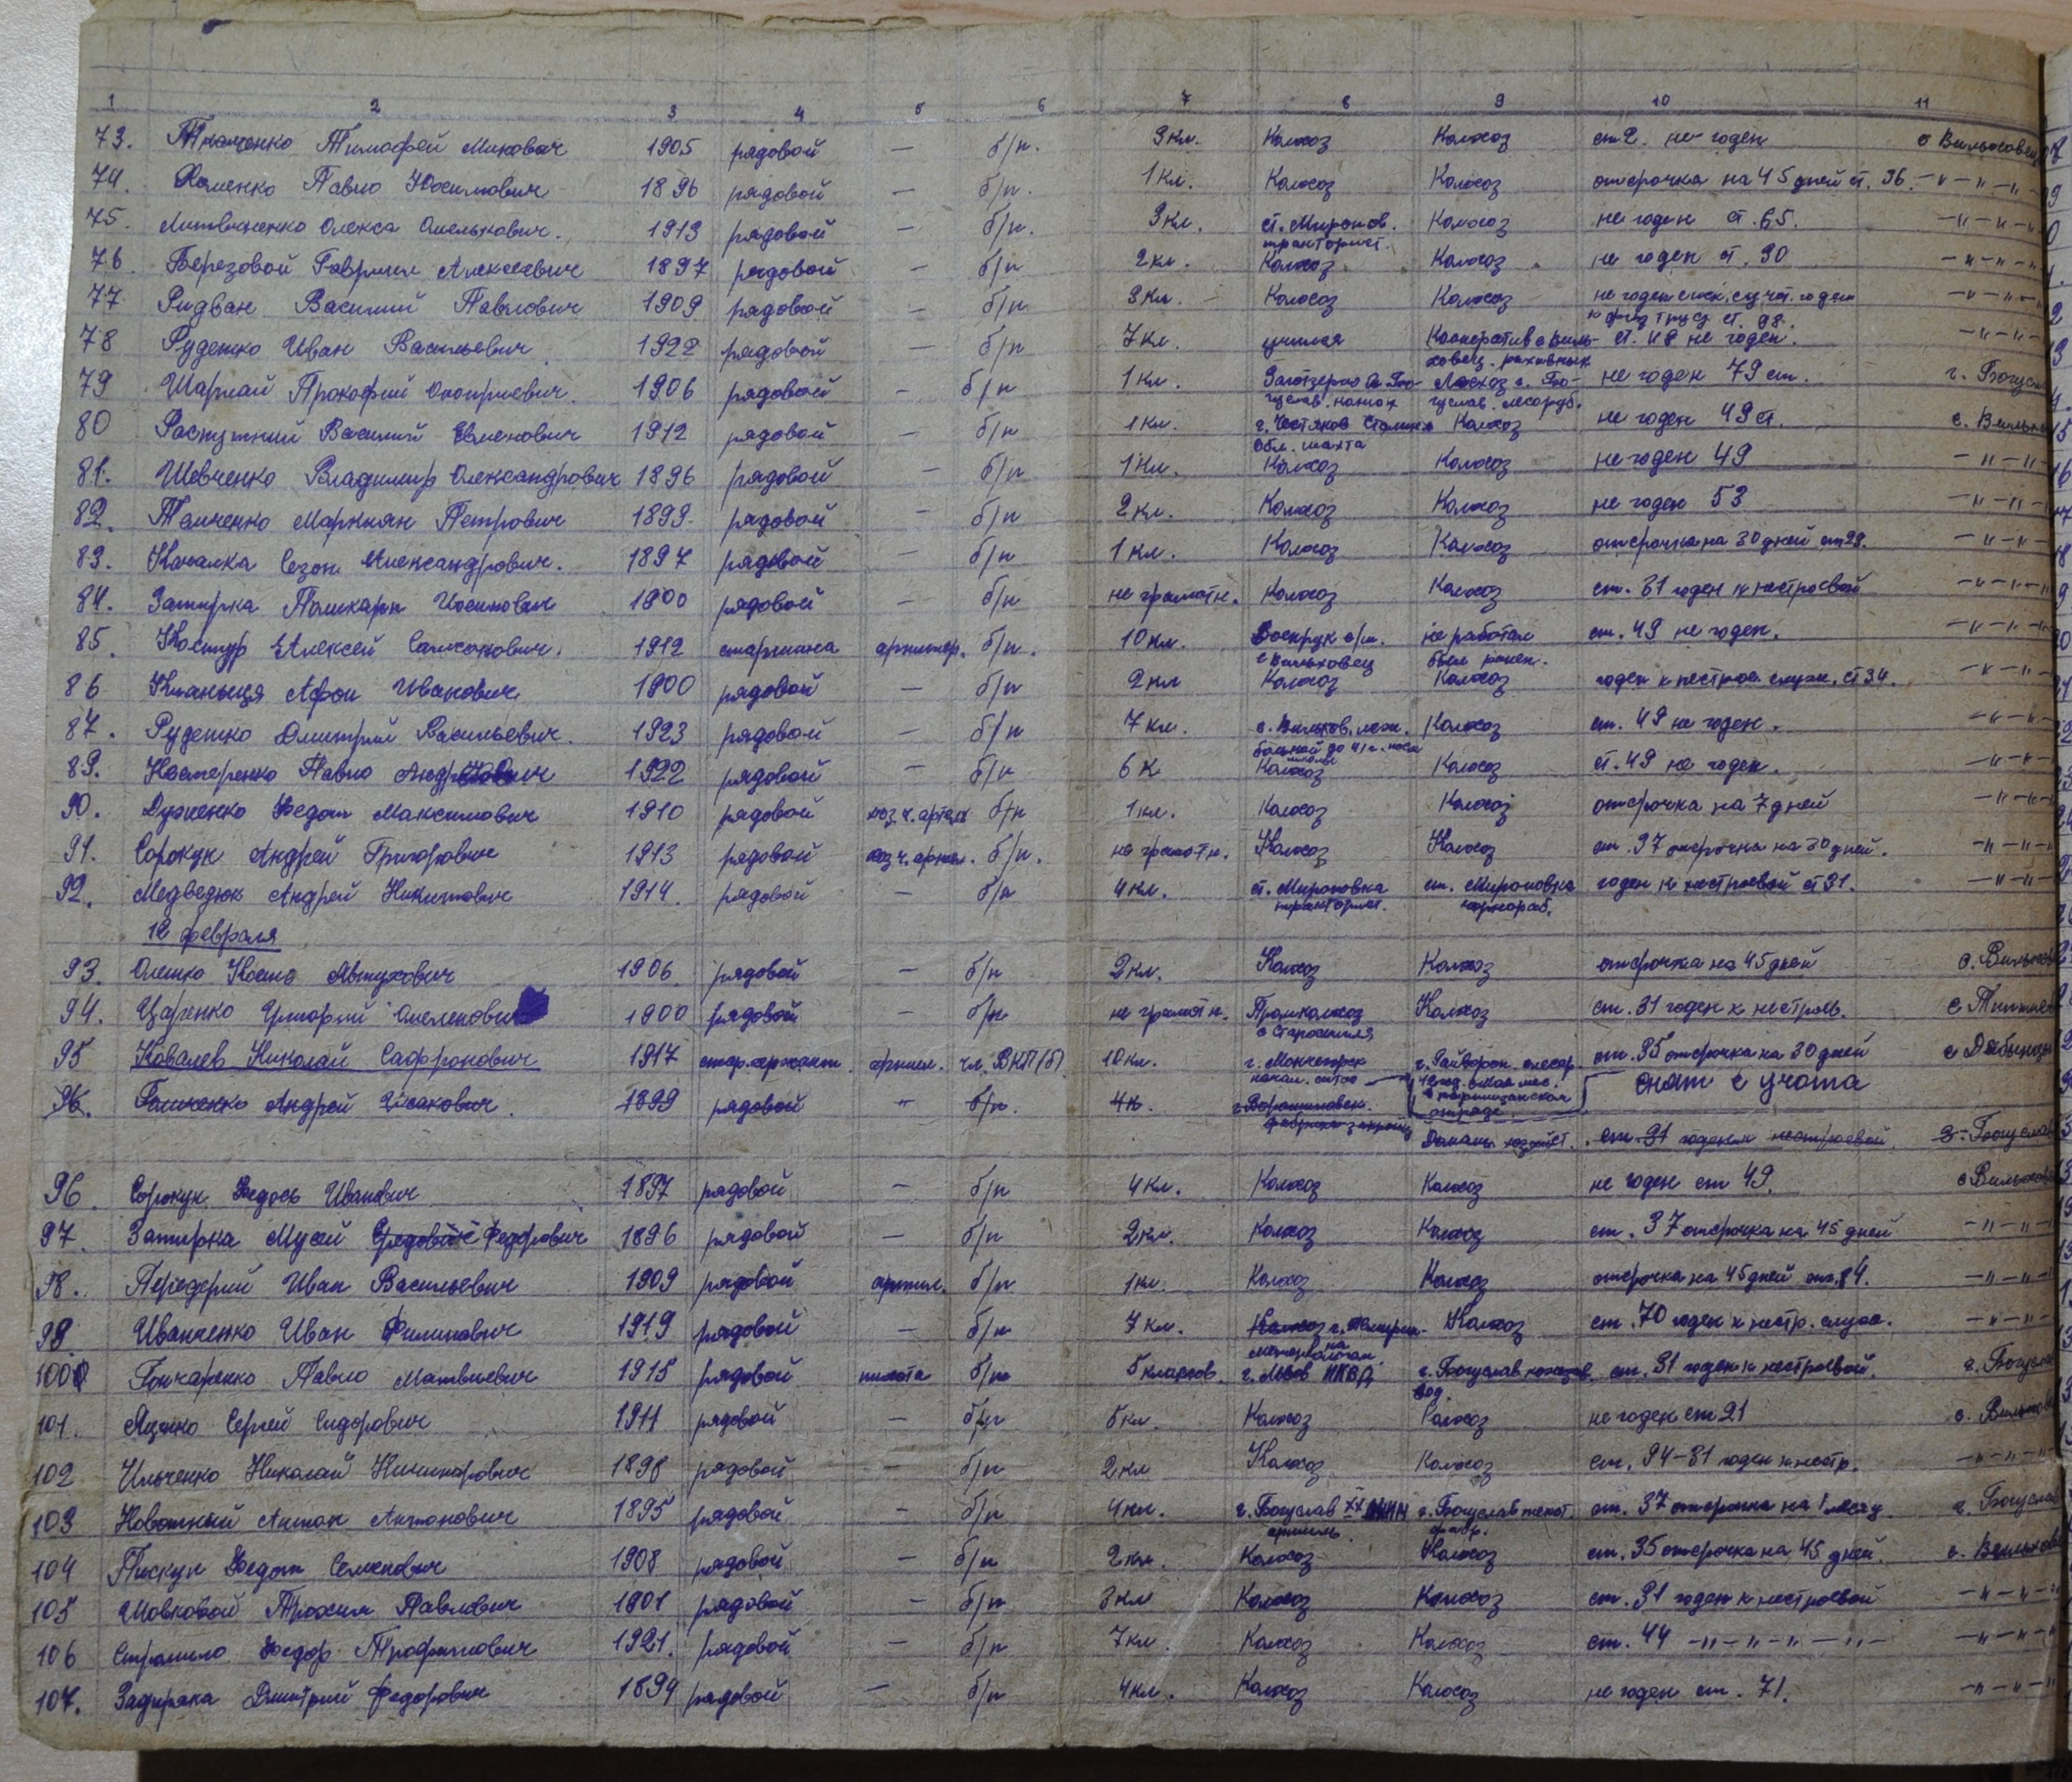 1 2 3 4 5 6 7 8 9 10 11
73. Ткаченко Тимофей Макович 1905 рядовой — б/п. 3 кл. Колхоз Колхоз ст 2. не годен с Вильховец
74. Хоменко Павло Йосипович 1896 рядовой — б/п. 1 кл. Колхоз Колхоз отсрочка на 45 дней ст. 36. —"—"—"
75. Литвиненко Олекса Омелькович. 1913 рядовой — б/п. 3 кл. ст. Миронов. тракторист. Колхоз не годен ст. 65. —"—"—"
76. Березовой Гавриил Алексеевич 1897 рядовой — б/п 2 кл. Колхоз Колхоз не годен ст. 30 —"—"—"
77 Ридван Василий Павлович 1909 рядовой — б/п 3 кл. Колхоз Колхоз не годен годен к физ труду ст. 98. —"—"—"
78 Руденко Иван Васильевич 1922 рядовой — б/п 7 кл. учился Кооператив с Виль-ховец. ст. 48 не годен. —"—"—
79 Шармай Прокофий Оноприевич. 1906 рядовой — б/п 1 кл. Заготзерно Лесхоз г. Бо-гуслав. лесоруб. не годен 79 ст. г. Богуслав
80 Распутний Василий Евменович 1912 рядовой — б/п 1 кл. г. Чистяков Сталинск обл. шахта Колхоз не годен 49 ст. с. Вильхо
81. Шевченко Владимир Олександрович 1896 рядовой — б/п 1 кл. Колхоз Колхоз не годен 49 —"—"—
82. Томченко Маркиян Петрович 1899. рядовой — б/п 2 кл. Колхоз Колхоз не годен 53 —"—"—
83. Качалка Сезон Александрович. 1897 рядовой — б/п 1 кл. Колхоз Колхоз отсрочка на 30 дней ст 29. —"—"—
84. Затирка Поликарп Иосипович 1900 рядовой — б/п не грамотн. Колхоз Колхоз ст. 31 годен к нестроевой —"—"—
85. Костур Алексей 1912 старшина артилер. б/п. 10 кл. Военрук с/ш. с Вильховец не работал был ранен. ст. 49 не годен. —"—"—
86 Афон Иванович 1900 рядовой — б/п 2 кл Колхоз Колхоз годен к нестроев. служ. ст 34. —"—"—
87. Руденко Дмитрий Васильевич. 1923 рядовой — б/п 7 кл. с. Вильхов. больной до 41 г. Колхоз ст. 49 не годен. —"—"—
89. Нестеренко Павло 1922 рядовой — б/п 6 к Колхоз Колхоз ст. 49 не годен. —"—"—
90. Дудченко Федот Максимович 1910 рядовой б/п 1 кл. Колхоз Колхоз отсрочка на 7 дней —"—"—
91. Сорокун Андрей Григорович 1913 рядовой б/п. не грамотн. Колхоз Колхоз ст. 37 отсрочка на 30 дней. —"—"—
92. Медведюк Андрей Никитович 1914. рядовой — б/п 4 кл. ст. Мироновка тракторист. ст. Мироновка чернораб. годен к нестроевой ст 31. —"—"—
12 февраля
93. Олешко Кость Автухович 1906. рядовой — б/п 2 кл. Колхоз Колхоз отсрочка на 45 дней с. Вильхов
94. Царенко Григорий Омелянович 1900 рядовой — б/п не грамотн. Промколхоз с Староселля Колхоз ст. 31 годен к нестроев.
95 Ковалев Николай Сафронович 1917 стар. сержант артил. чл. ВКП(б) 10 кл. г. Мончегорск г. Гайворон. слесар. 42 год. с Мая мес. в партизанском отряде ст. 35 отсрочка на 30 дней с Дыбинцы
снят с учота
96. Гомченко Андрей Исакович 1899 рядовой " б/п. 4 к. г. Ворошиловск. фабрика Домашн. хозяйст. ст. 31 годен к нестроевой г. Богуслав
96. Сорокун Федось Иванович 1897 рядовой — б/п 4 кл. Колхоз Колхоз не годен ст 49. с Вильхов
97. Затирка Мусей Федорович 1896 рядовой — б/п 2 кл. Колхоз Колхоз ст. 37 отсрочка на 45 дней —"—"—
98. Передерий Иван Васильевич 1909 рядовой артил. б/п 1 кл. Колхоз Колхоз отсрочка на 45 дней ст. 84. —"—"—
99. Иванченко Иван Филипович 1919 рядовой — б/п 7 кл. Колхоз ст. 70 годен к нестр. служ. —"—"—
100 Гончаренко Павло Матвиевич 1915 рядовой пихота б/п 5 классов. г. Львов НКВД г. Богуслав ст. 31 годен к нестроевой. г. Богуслав
101. Яценко Сергей Сидорович 1911 рядовой — б/п 5 кл. Колхоз Колхоз не годен ст 21 с. Вильхов
102 Ильченко Николай Никифорович 1898 рядовой — б/п 2 кл Колхоз Колхоз ст. 94-31 годен к нестр. —"—"—
103 Новатный Антон Антонович 1895 рядовой — б/п 4 кл. г. Богуслав артиль г. Богуслав текст. фабр. ст. 37 отсрочка на 1 месяц г. Богуслав
104 Пискун Федот Семенович 1908 рядовой — б/п 2 кл. Колхоз Колхоз ст. 35 отсрочка на 45 дней. с. Вильхов
105 Шовковой Трохим Павлович 1901 рядовой — б/п 3 кл Колхоз Колхоз ст. 31 годен к нестроевой —"—"—
106 Стромило Федор Трофимович 1921. рядовой — б/п 7 кл. Колхоз Колхоз ст. 44 —"—"—"—"— —"—"—
107. Задирака Дмитрий Федорович 1894 рядовой — б/п 4 кл. Колхоз Колхоз не годен ст. 71. —"—"—